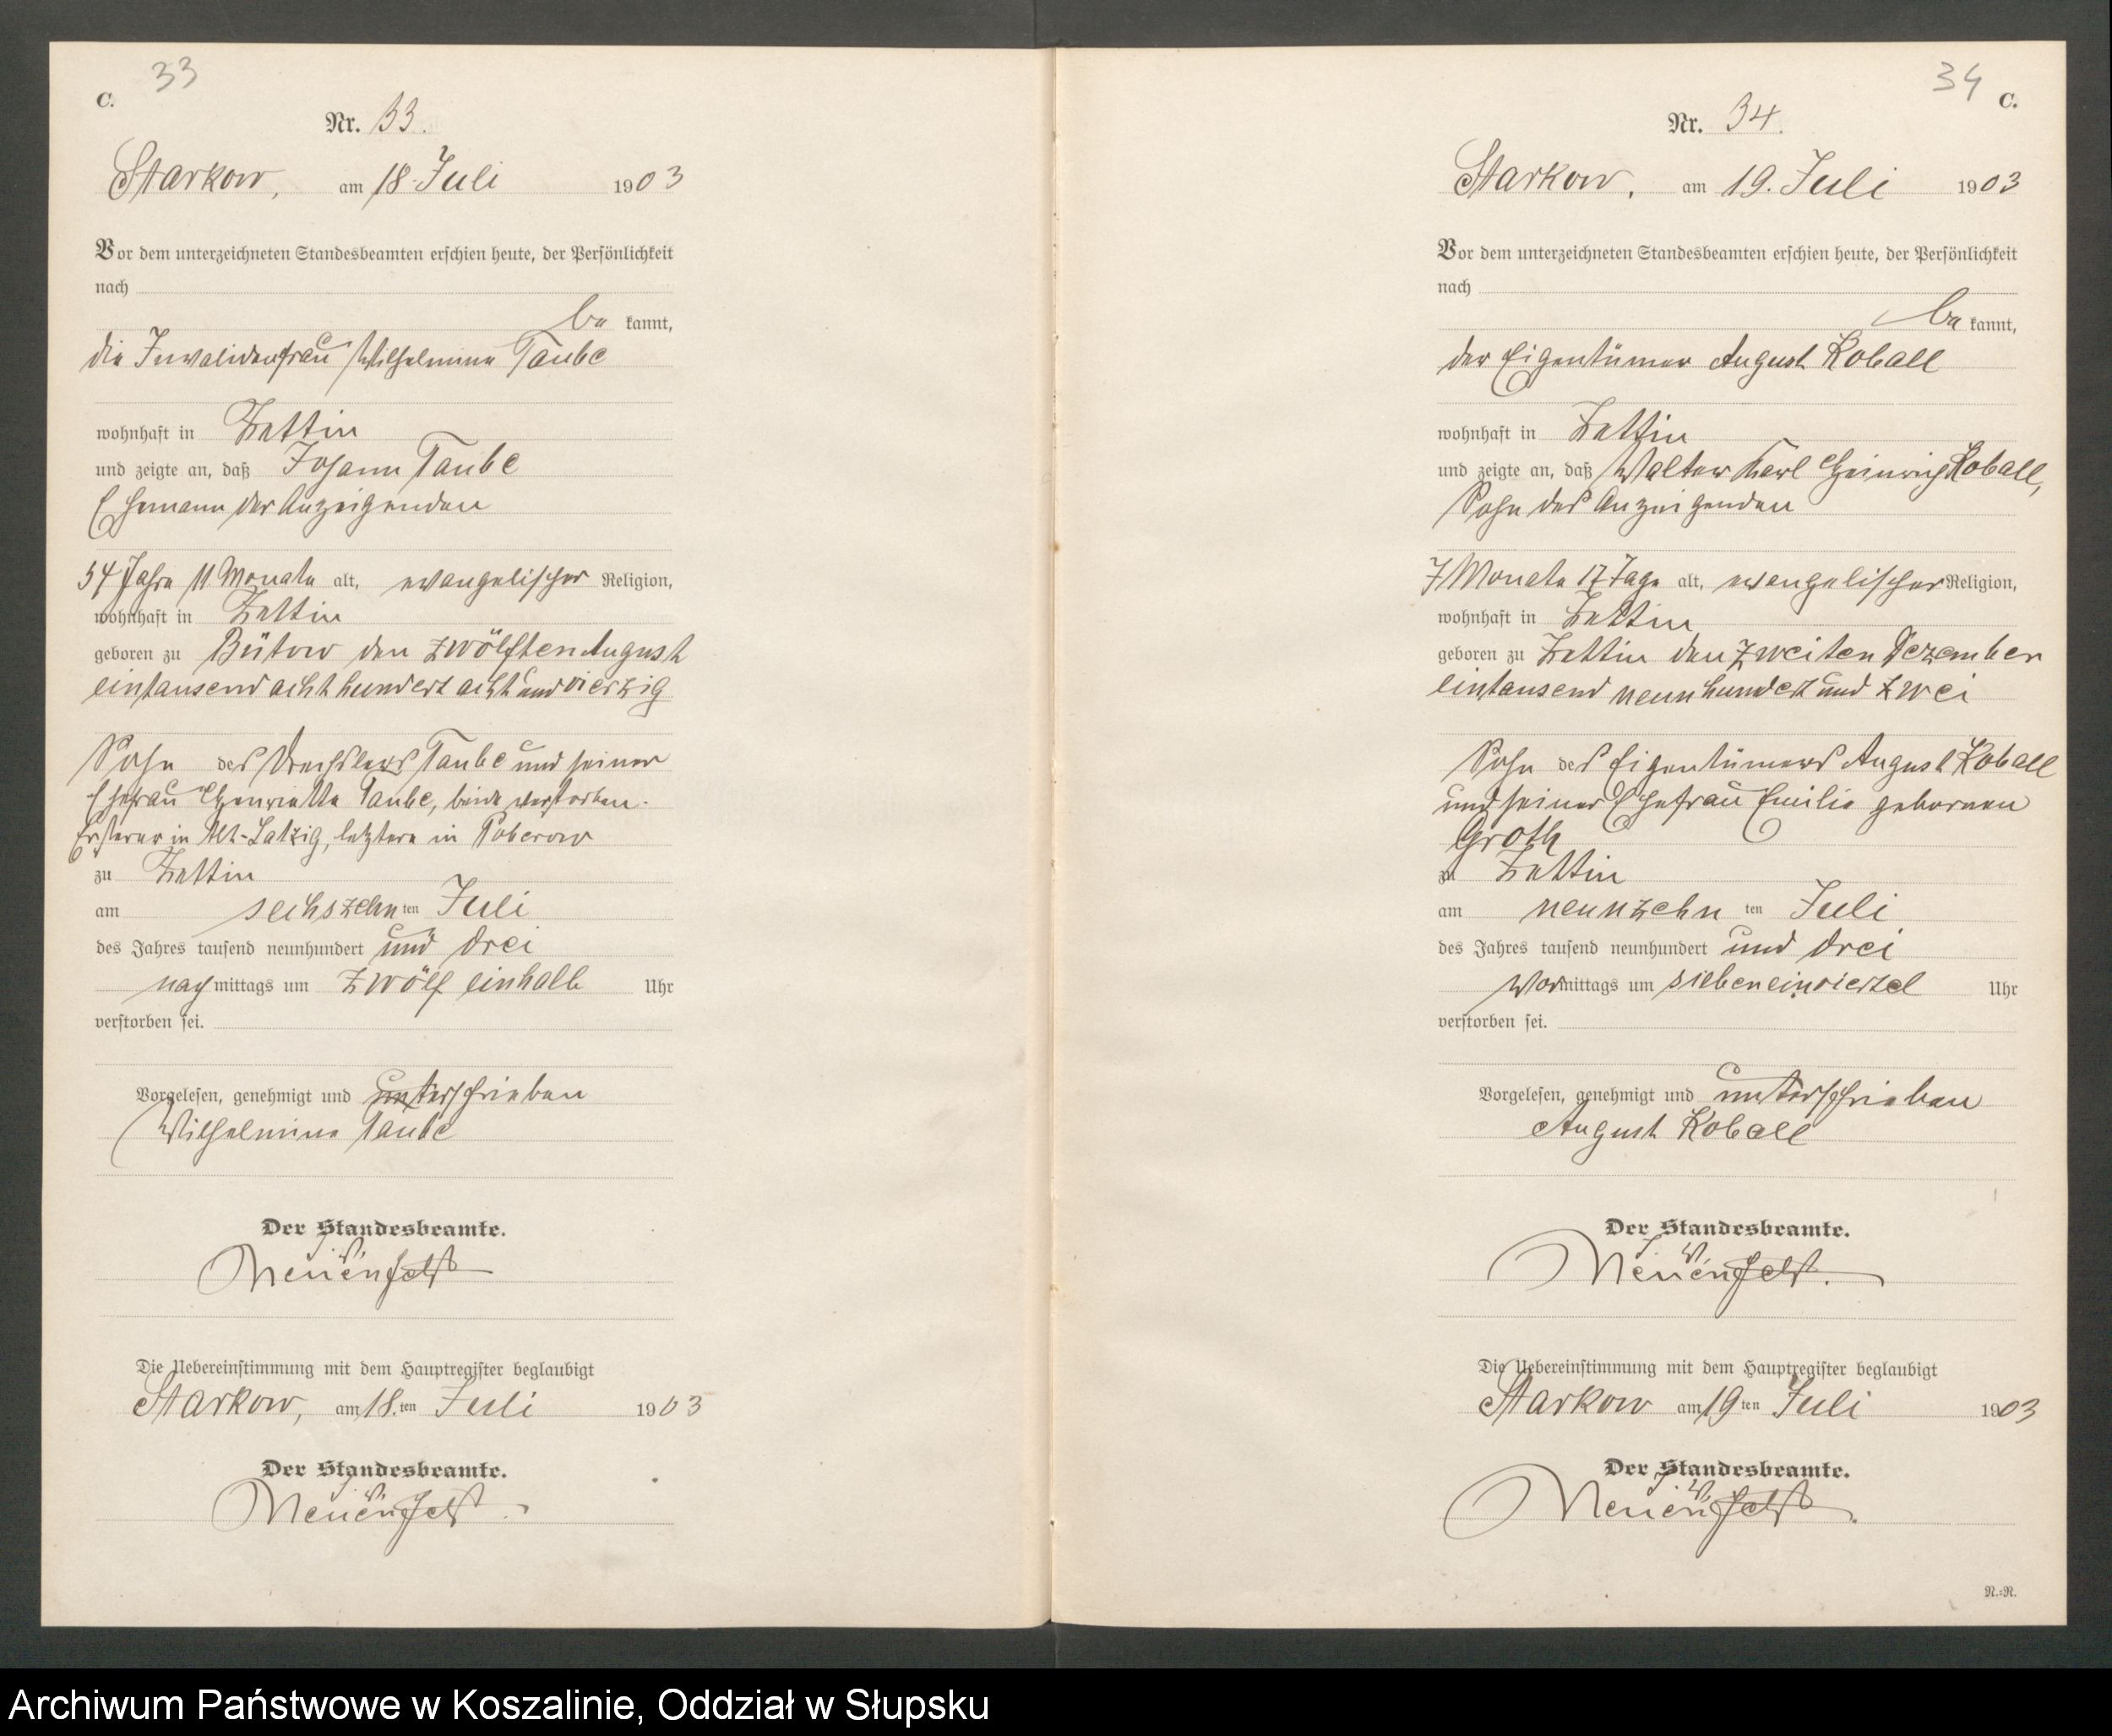 33
C.
Nr. 33.
Starkow, am 18. Juli 1903
Vor dem unterzeichneten Standesbeamten erschien heute, der Persönlichkeit
nach
be kannt,
die Invalidenfrau Wilhelmine Taube
wohnhaft in Zettin
und zeigte an, daß Johann Taube
Ehemann der Anzeigenden
54 Jahre 11 Monate alt, evangelischer Religion,
wohnhaft in Zettin
geboren zu Bütow den zwölften August
eintausend acht hundert acht und vierzig
Sohn des Drechslers Taube und seiner
Ehefrau Henriette Taube, beide verstorben.
Ersterer in Alt-Latzig, letztere in Poberow
zu Zettin
am sechszehn ten Juli
des Jahres tausend neunhundert und drei
nach mittags um zwölf einhalb Uhr
verstorben sei.
Vorgelesen, genehmigt und unterschrieben
Wilhelmine Taube
Der Standesbeamte.
J. V.
Neuenfeldt
Die Uebereinstimmung mit dem Hauptregister beglaubigt
Starkow, am 18. ten Juli 1903
Der Standesbeamte.
J. V.
Neuenfeldt
34
C.
Nr. 34.
Starkow, am 19. Juli 1903
Vor dem unterzeichneten Standesbeamten erschien heute, der Persönlichkeit
nach
be kannt,
der Eigentümer August Koball
wohnhaft in Zettin
und zeigte an, daß Walter Karl Heinrich Koball,
Sohn des Anzeigenden
7 Monate 17 Tage alt, evangelischer Religion,
wohnhaft in Zettin
geboren zu Zettin den zweiten Dezember
eintausend neunhundert und zwei
Sohn des Eigentümers August Koball
und seiner Ehefrau Emilie geborenen
Groth
zu Zettin
am neunzehn ten Juli
des Jahres tausend neunhundert und drei
Vor mittags um sieben einviertel Uhr
verstorben sei.
Vorgelesen, genehmigt und unterschrieben
August Koball
Der Standesbeamte.
J. V.
Neuenfeldt.
Die Uebereinstimmung mit dem Hauptregister beglaubigt
Starkow am 19 ten Juli 1903
Der Standesbeamte.
J. V.
Neuenfeldt.
N.=N.
Archiwum Państwowe w Koszalinie, Oddział w Słupsku